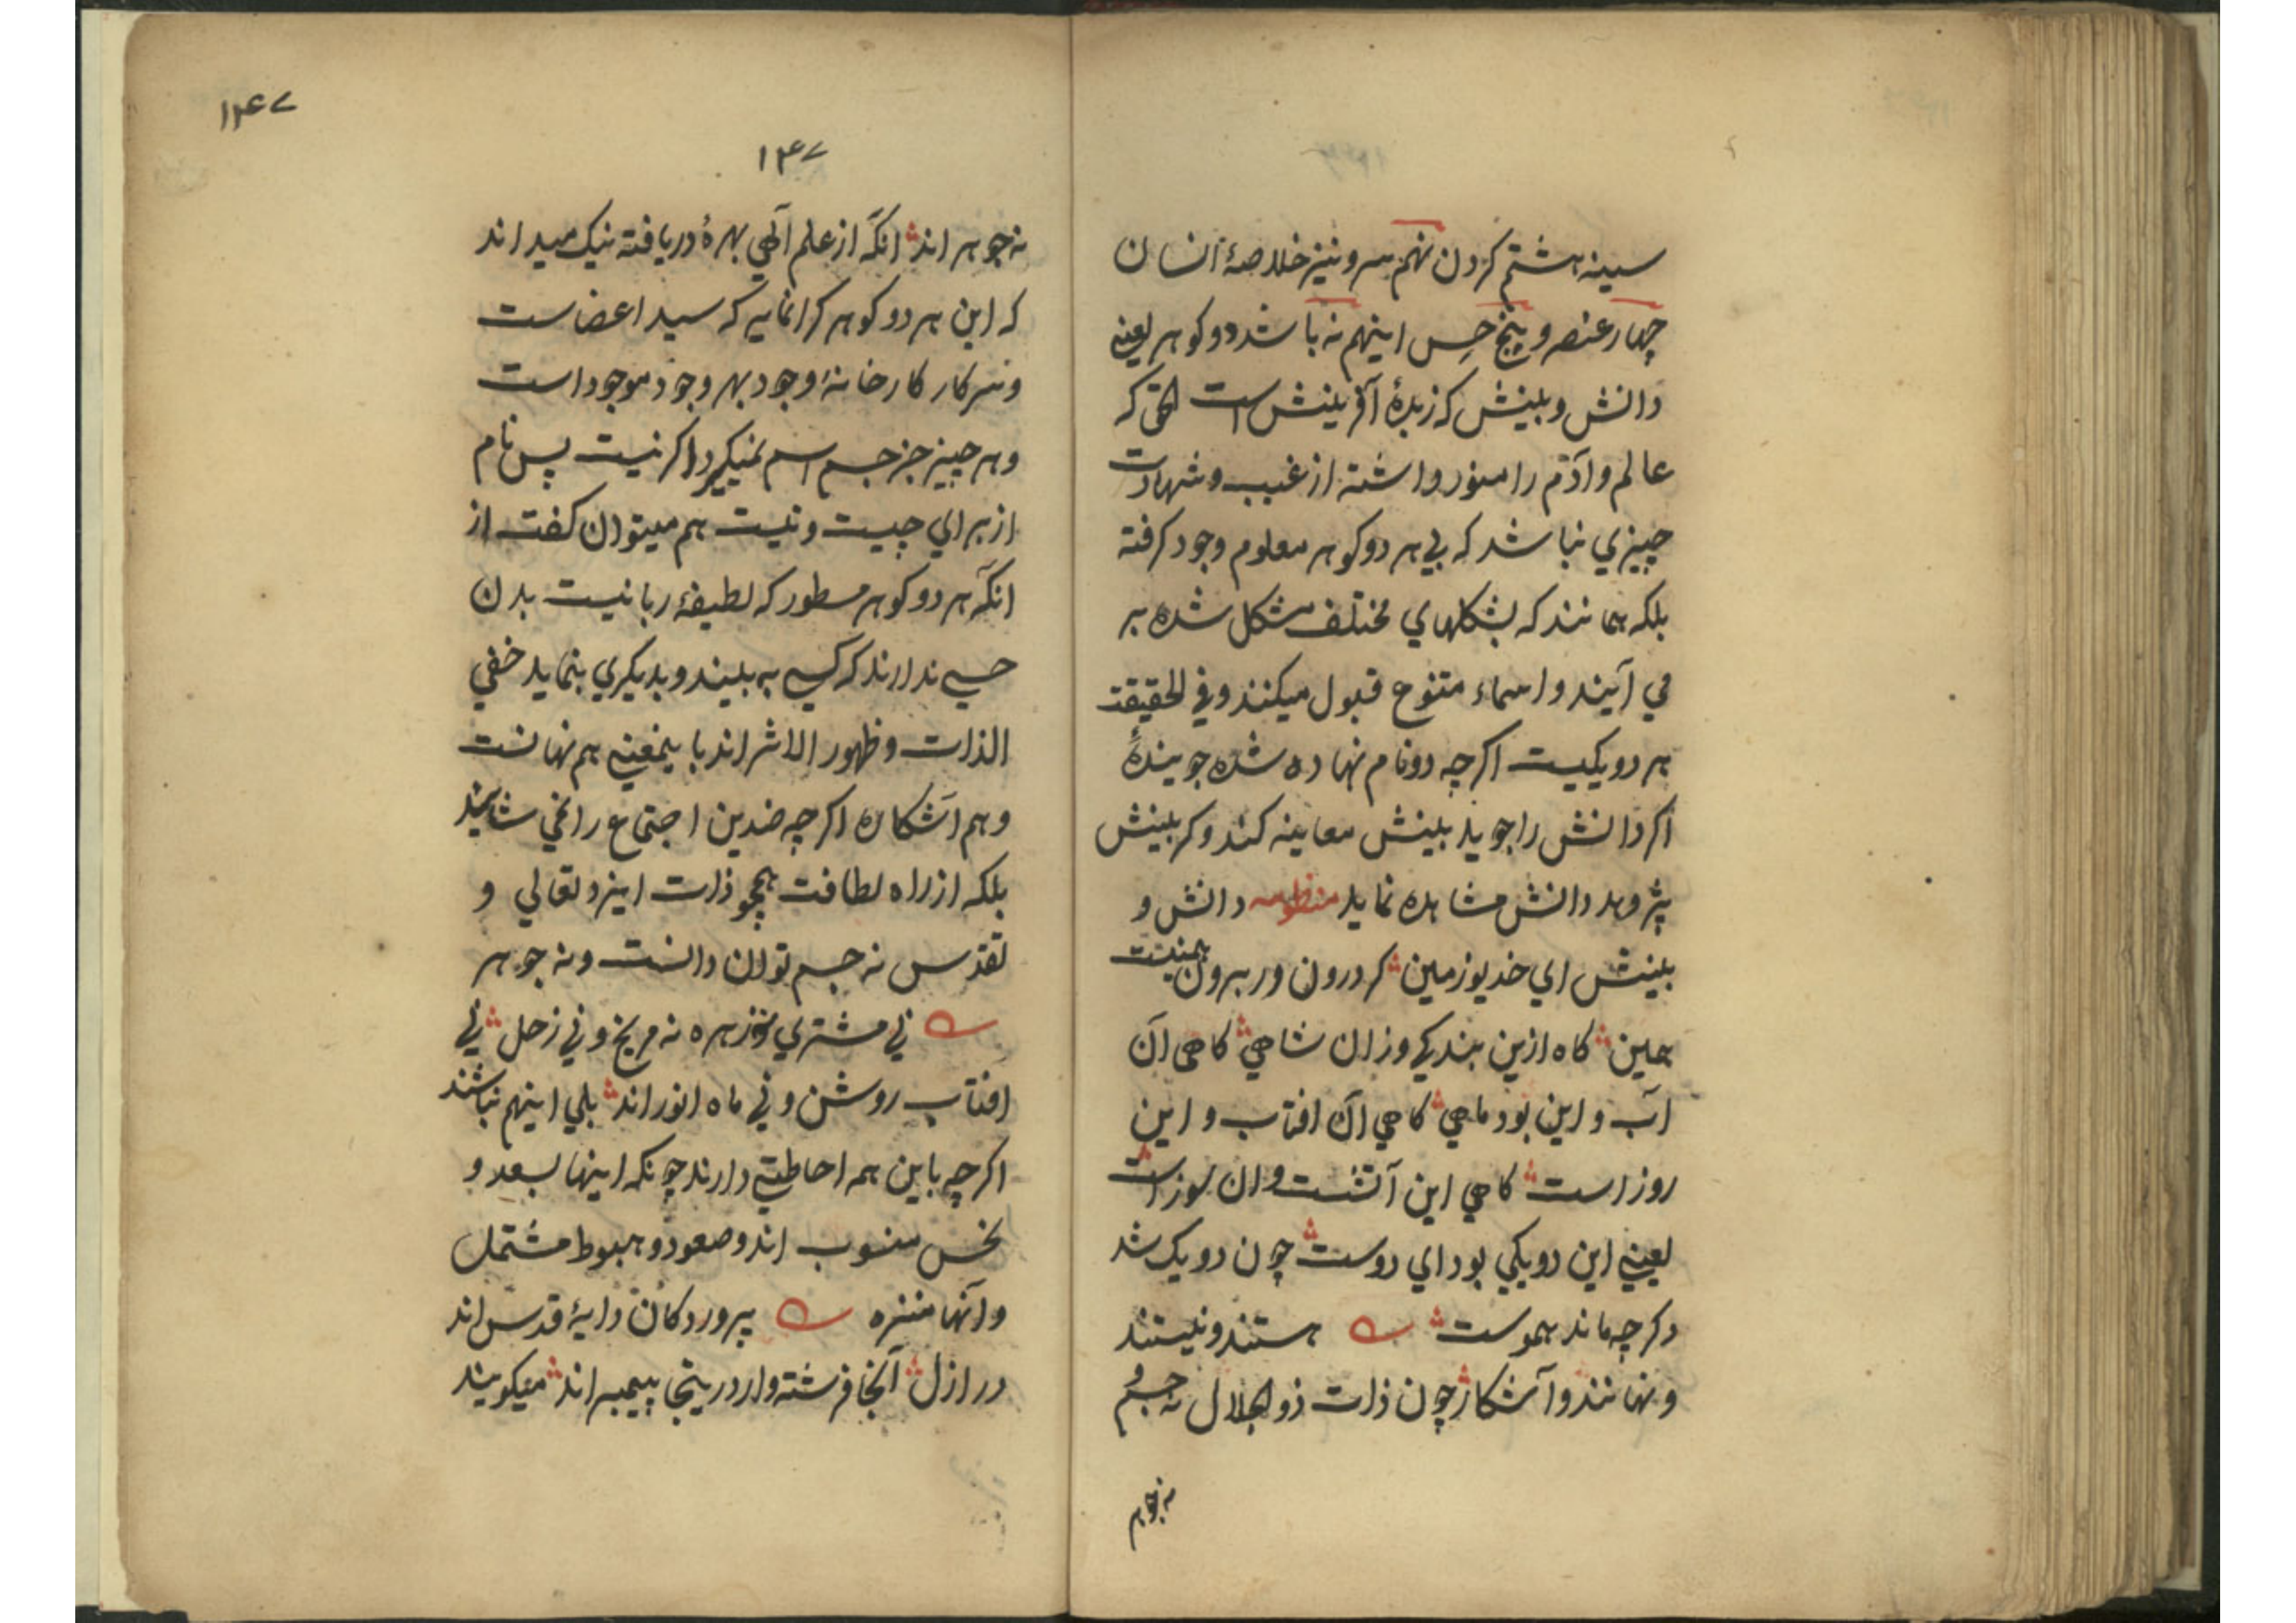 سینه هشتم کردن نهم سر و نیز خلاصهٔ انسان
چهار عنصر و پنج حِس اینهم نه باشد دو کوهر یعنے
دانش و بینش که زبدهٔ آفرینش است الحق که
عالم و آدم را منور داشته از غیب و شهادت
چیزي نباشد که بي هر دو کوهر معلوم وجود کرفته
بلکه همانند که بشکلهاي مختلف مشکل شده بر
مي آیند و اسماء متنوع قبول میکنند و في الحقیقت
هر دو یکیست اکرچه دو نام نهاده شده جویندهٔ
اکر دانش را جوید بینش معاینه کند و کر بینش
پژوهد دانش مشاهده نماید منظومه دانش و
بینش اي خدیو زمین کر درون ور برون همینست
همین کاه ازین بندکي وزان شاهي کاهي آن
آب و این بود ماهي کاهي آن افتاب و این
روز است کاهي این آتشست و ان سوز است
یعنے این دو یکي بود اي دوست چون دو یک شد
دکر چه ماند هموست هستند و نیستند
و نهانند و آشکار چون ذات ذوالجلال نه جسم و
نه جوهر
۱۴۷
۱۴۷
نه جوهر اند انکه از علم آلهي بهرهٔ دریافته نیک میداند
که این هر دو کوهر کرانمایه که سید اعضاست
و سرکار کارخانهٔ وجود بهر وجود موجود است
و هر چیز جز جسم اسم نمیکیرد اکر نیست پس نام
از براي چیست و نیست هم میتوان کفت از
انکه هر دو کوهر مسطور که لطیفهٔ ربانیست بدن
حسے ندارند که کسے به بیند و بدیکري بنماید خفي
الذات و ظهور الاثر اند باینمعنے هم نهانست
و هم اشکاره اکرچه ضدین اجتماع را نمي شایند
بلکه از راه لطافت همچو ذات ایزد تعالي و
تقدس نه جسم توان دانست و نه جوهر
ني مشتري نه زهره نه مریخ و ني زحل ني
افتاب روشن و ني ماه انور اند بلي اینهم نباشند
اکرچه باین هم احاطتے دارند چونکه اینها بسعد و
نحس منسوب اند و صعود و هبوط مشتمل
و آنها منزه پروردکان دایهٔ قدس اند
در ازل آنجا فرشته وار در ینجا پیمبر اند میکویند